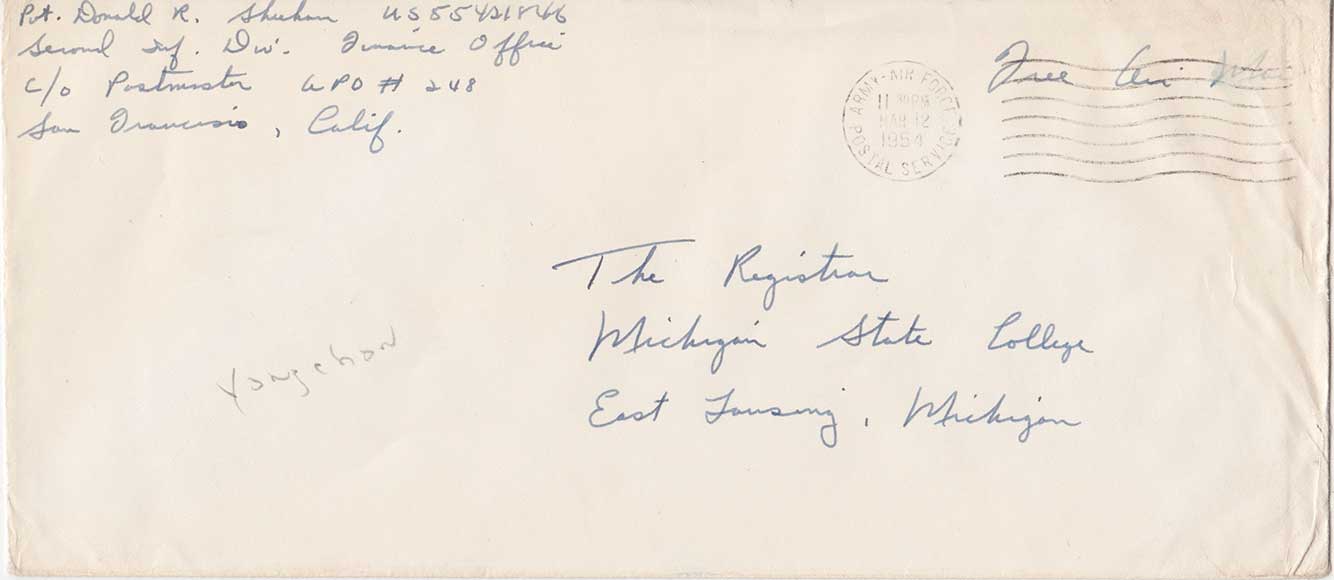 Pvt. Donald R. Sheehan US 55421846
Second Inf. Div. Finance Office
c/o Postmaster APO # 248
San Francisco, Calif.
Free Air Mail
ARMY-AIR FORCE
MAR 12
1954
POSTAL SERVICE
The Registrar
Michigan State College
East Lansing, Michigan
Yongchon